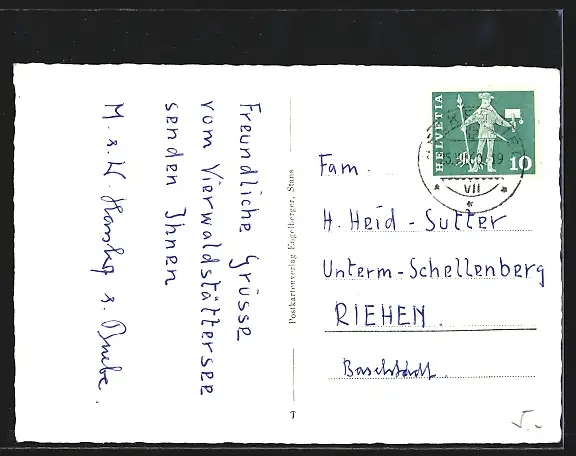 Freundliche Grüsse
vom Vierwaldstättersee
senden Ihnen
M. s. W.
Postkartenverlag Engelberger, Stans
T
HELVETIA
10
VII
Fam.
H. Heid - Sutter
Unterm-Schellenberg
RIEHEN.
Baselstadt.
5.-